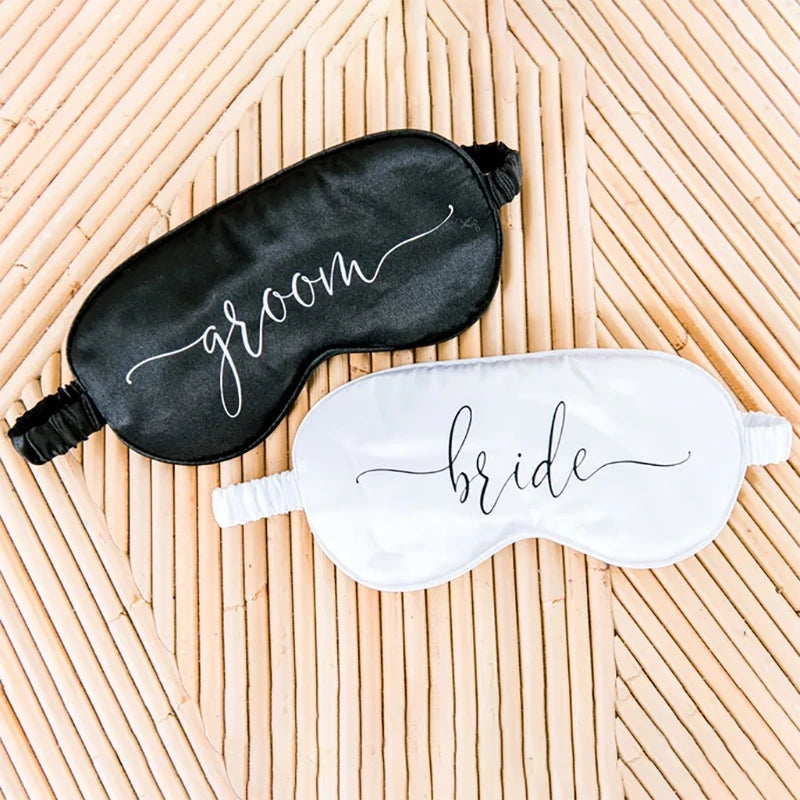 groom
bride